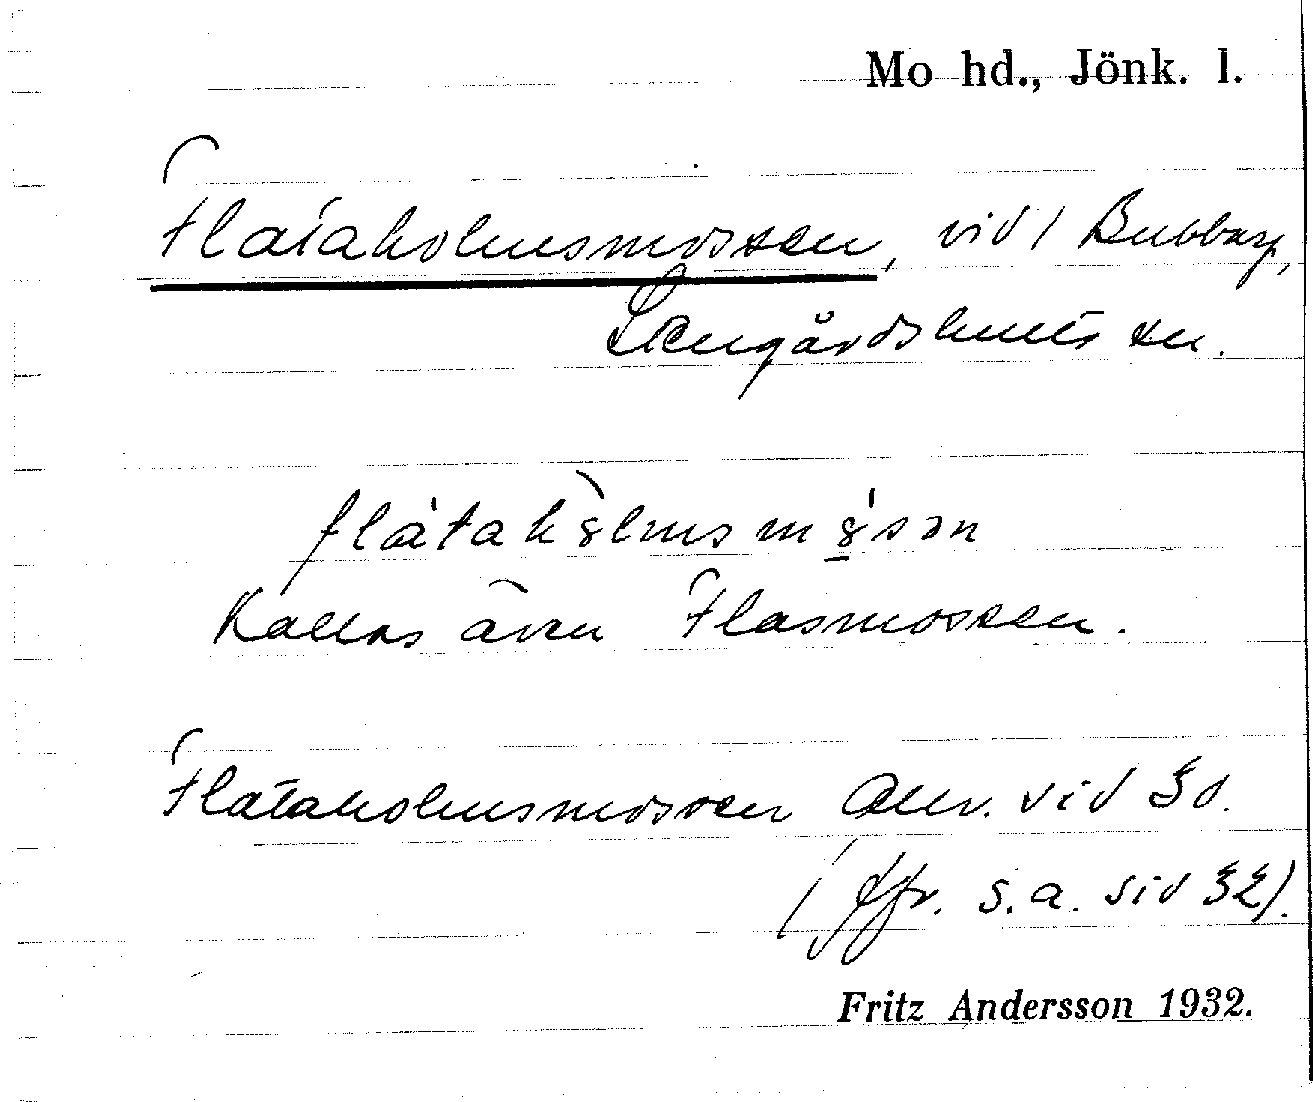 Mo hd., Jönk. l.
Flataholmsmossen, vid Bubbarp,
Långårdshults sn.
flátahòlmsmósən
Kallas även Flasmossen.
Flataholmsmossen Allm. vid
(Jfr. s.a. sid 32).
Fritz Andersson 1932.